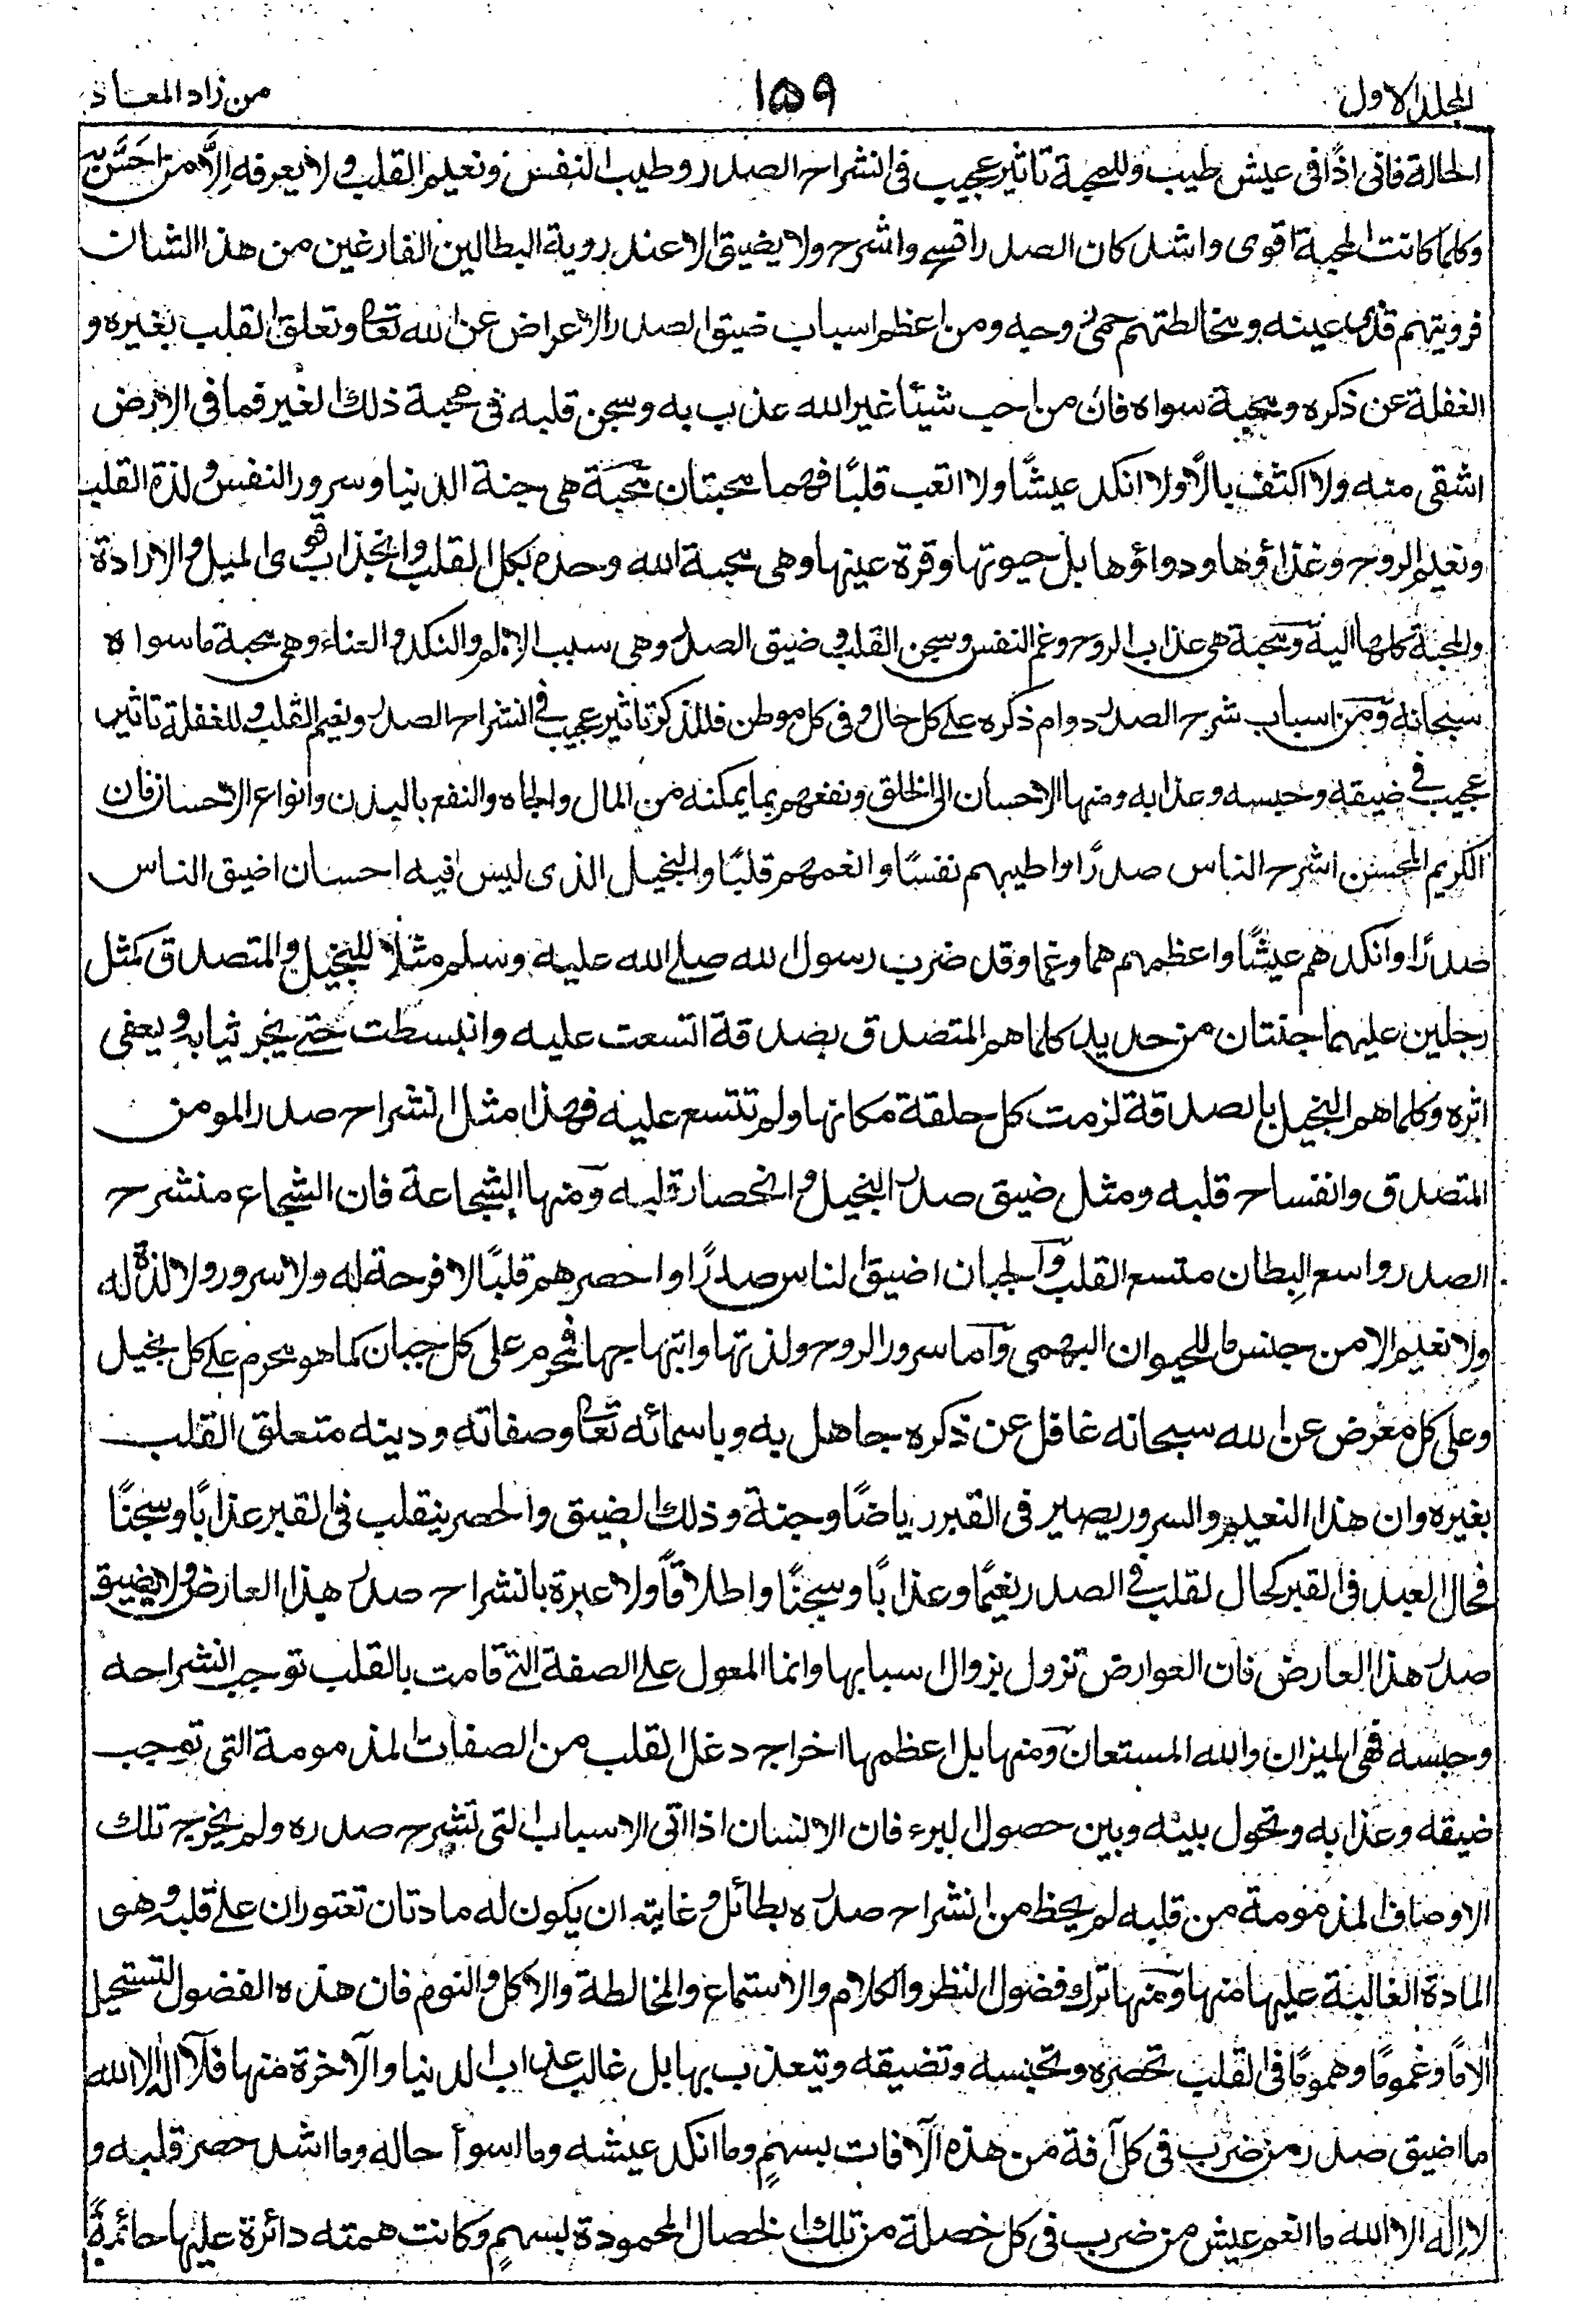 المجلد الاول ١٥٩ من زاد المعاد
الحالة فانى اذًا فى عيش طيب وللمحبة تاثير عجيب فى انشراح الصدر وطيب النفس ونعيم القلب ولا يعرفه اِلّا من احسّ به
وكلما كانت المحبة اقوى واشد كان الصدر افسح واشرح ولا يضيق الا عند روية البطالين الفارغين من هذا الشان
فرويتهم قذى عينه ومخالطتهم حمى روحه ومن اعظم اسباب ضيق الصدر الاعراض عن الله تعالى وتعلق القلب بغيره و
الغفلة عن ذكره ومحبة سواه فان من احب شيئا غير الله عذب به وسجن قلبه فى محبة ذلك الغير فما فى الارض
اشقى منه ولا اكثف بالًا ولا انكد عيشًا ولا اتعب قلبًا فهما محبتان محبة هى جنة الدنيا وسرور النفس ولذة القلب
ونعيم الروح وغذاؤها ودواؤها بل حيوتها وقرة عينها وهى محبة الله وحده بكل القلب وانجذاب قوى الميل والارادة
والمحبة كلها اليه ومحبة هى عذاب الروح وغم النفس وسجن القلب وضيق الصدر وهى سبب الالم والنكد والعناء وهى محبة ما سواه
سبحانه ومن اسباب شرح الصدر دوام ذكره على كل حال وفى كل موطن فللذكر تاثير عجيب فى انشراح الصدر ونعيم القلب وللغفلة تاثير
عجيب فى ضيقه وحبسه وعذابه ومنها الاحسان الى الخلق ونفعهم بما يمكنه من المال والجاه والنفع بالبدن وانواع الاحسان فان
الكريم المحسن اشرح الناس صدرًا واطيبهم نفسًا وانعمهم قلبًا والبخيل الذى ليس فيه احسان اضيق الناس
صدرًا وانكدهم عيشًا واعظمهم هما وغما وقد ضرب رسول الله صلى الله عليه وسلم مثلًا للبخيل والمتصدق كمثل
رجلين عليهما جنتان من حديد كلما هم المتصدق بصدقة اتسعت عليه وانبسطت حتى يجر ثيابه ويعفى
اثره وكلما هم البخيل بالصدقة لزمت كل حلقة مكانها ولم تتسع عليه فهذا مثل انشراح صدر المومن
المتصدق وانفساح قلبه ومثل ضيق صدر البخيل وانحصار قلبه ومنها الشجاعة فان الشجاع منشرح
الصدر واسع البطان متسع القلب والجبان اضيق الناس صدرًا واحصرهم قلبًا لا فرحة له ولا سرور ولا لذة له
ولا نعيم الا من جنس ما للحيوان البهمى واما سرور الروح ولذتها وابتهاجها فمحرم على كل جبان كما هو محرم على كل بخيل
وعلى كل معرض عن الله سبحانه غافل عن ذكره جاهل به وباسمائه تعالى وصفاته ودينه متعلق القلب
بغيره وان هذا النعيم والسرور يصير فى القبر رياضًا وجنة وذلك الضيق والحصر ينقلب فى القبر عذابًا وسجنًا
فحال العبد فى القبر كحال القلب فى الصدر نعيمًا وعذابًا وسجنًا واطلاقًا ولا عبرة بانشراح صدر هذا العارض ولا بضيق
صدر هذا العارض فان العوارض تزول بزوال اسبابها وانما المعول على الصفة التى قامت بالقلب توجب انشراحه
وحبسه فهى الميزان والله المستعان ومنها بل اعظمها اخراج دغل القلب من الصفات المذمومة التى توجب
ضيقه وعذابه وتحول بينه وبين حصول البرء فان الانسان اذا اتى الاسباب التى تشرح صدره ولم يخرج تلك
الاوصاف المذمومة من قلبه لم يحظ من انشراح صدره بطائل وغايته ان يكون له مادتان تعتوران على قلبه وهو
المادة الغالبة عليها منها ومنها ترك فضول النظر والكلام والاستماع والمخالطة والاكل والنوم فان هذه الفضول تستحيل
اٰلامًا وغمومًا وهمومًا فى القلب تحصره وتحبسه وتضيقه ويتعذب بها بل غالب عذاب الدنيا والآخرة منها فلا اله الا الله
ما اضيق صدر من ضرب فى كل آفة من هذه الآفات بسهمٍ وما انكد عيشه وما اسوأ حاله وما اشد حصر قلبه و
لا اِله الا الله ما انعم عيش من ضرب فى كل خصلة من تلك الخصال المحمودة بسهمٍ وكانت همته دائرة عليها حائمةً